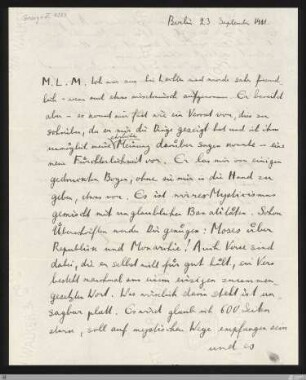 Berlin 23 September 1911.
M. L. M. Ich war nun bei Loewe und wurde sehr freund-
lich – wenn auch etwas misstrauisch aufgenommen. Er bereitet
also – es kommt mir fast wie ein Verrat vor, dies zu
schreiben, da er mir die Dinge gezeigt hat und ich ihm
unmöglich meine ehrliche Meinung darüber sagen konnte – eine
neue Fürchterlichkeit vor. Er las mir von einigen
gedruckten Bogen, ohne sie mir in die Hand zu
geben, etwas vor. Es ist wirrer Mystizismus
gemischt mit unglaublichen Banalitäten. Schon
Überschriften werden Dir genügen: Moses über
Republik und Monarchie! Auch Verse sind
dabei, die er selbst nicht für gut hält, ein Vers
besteht manchmal aus einem einzigen zusammen-
gesetzten Wort. Was wirklich darin steht ist un-
sagbar platt. Es wird glaub ich 600 Seiten
stark, soll auf mystischem Wege empfangen sein
und es